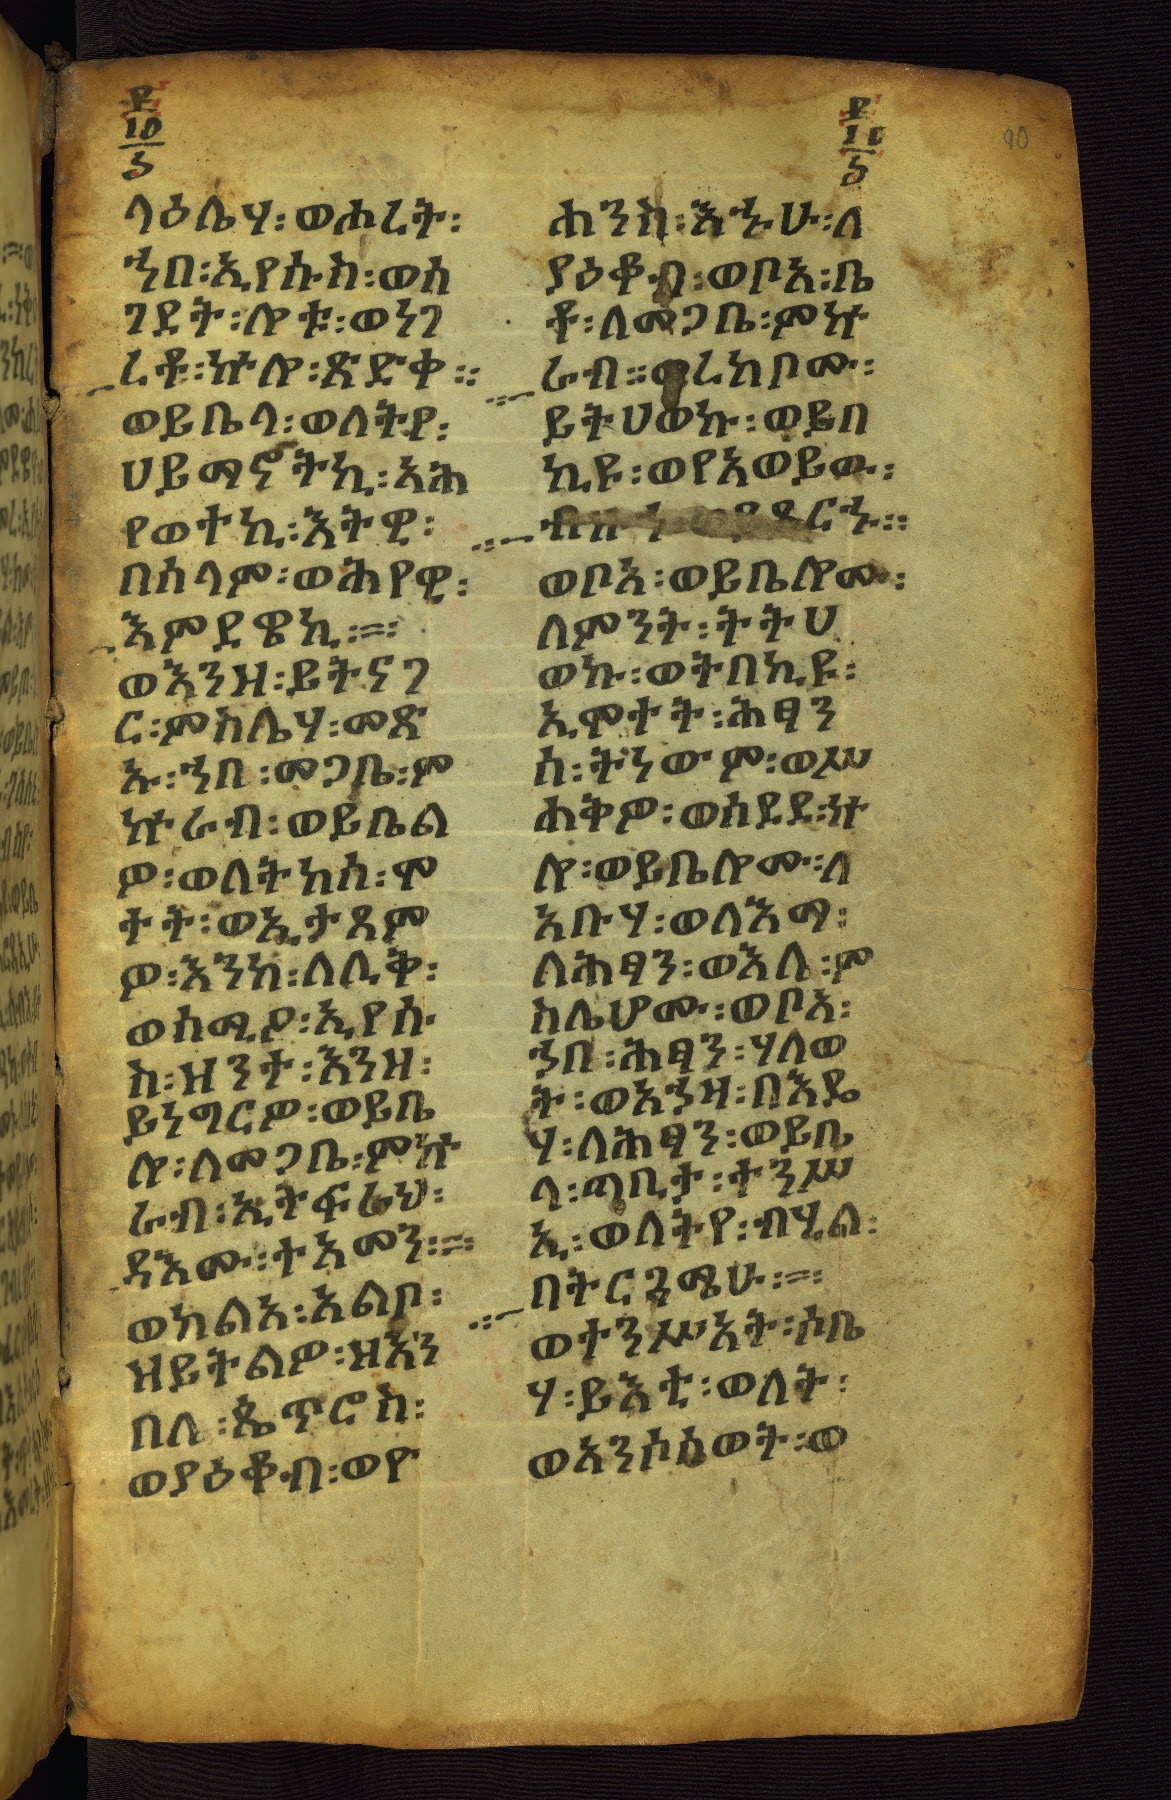 ላዕሌሃ፡ወሖረት፡
ኀበ፡ኢየሱስ፡ወሰ
ገደት፡ሎቱ፡ወነገ
ረቶ፡ኵሎ፡ጽድቀ፨
ወይቤላ፡ወለትየ፡
ሀይማኖትኪ፡አሕ
የወተኪ፡እትዊ፡
በሰላም፡ወሕየዊ፡
እምደዌኪ፨
ወእንዘ፡ይትናገ
ር፡ምስሌሃ፡መጽ
ኡ፡ኀበ፡መጋቤ፡ም
ኵራብ፡ወይቤል
ዎ፡ወለትከሰ፡ሞ
ተት፡ወኢታጻም
ዎ፡እንከ፡ለሊቅ፡
ወሰሚዖ፡ኢየሱ
ስ፡ዝንተ፡እንዘ፡
ይነግርዎ፡ወይቤ
ሎ፡ለመጋቤ፡ምኵ
ራብ፡ኢትፍራህ፡
ዳእሙ፡ተአመን፨
ወከልአ፡አልቦ፡
ዘይትልዎ፡ዘእን
በለ፡ጴጥሮስ፡
ወያዕቆብ፡ወዮ
ሐንስ፡እኁሁ፡ለ
ያዕቆብ፡ወቦአ፡ቤ
ቶ፡ለመጋቤ፡ምኵ
ራብ፨ወረከቦሙ፡
ይትሀወኩ፡ወይበ
ኪዩ፡ወየአወይዉ፡
ወቦአ፡ወይቤሎሙ፡
ለምንት፡ትትሀ
ወኩ፡ወትበኪዩ፡
ኢሞተት፡ሕፃን
ሰ፡ትነውም፡ወሠ
ሐቅዎ፡ወሰደደ፡ኵ
ሎ፡ወይቤሎሙ፡ለ
አቡሃ፡ወለእማ፡
ለሕፃን፡ወእለ፡ም
ስሌሆሙ፡ወቦአ፡
ኀበ፡ሕፃን፡ሃለወ
ት፡ወአኀዛ፡በእዴ
ሃ፡ለሕፃን፡ወይቤ
ላ፡ጣቢታ፡ተንሥ
ኢ፡ወለትየ፡ብሂል፡
በትርጓሜሁ፨
ወተንሥአት፡ሶቤ
ሃ፡ይእቲ፡ወለት፡
ወአንሶሰወት፡ወ